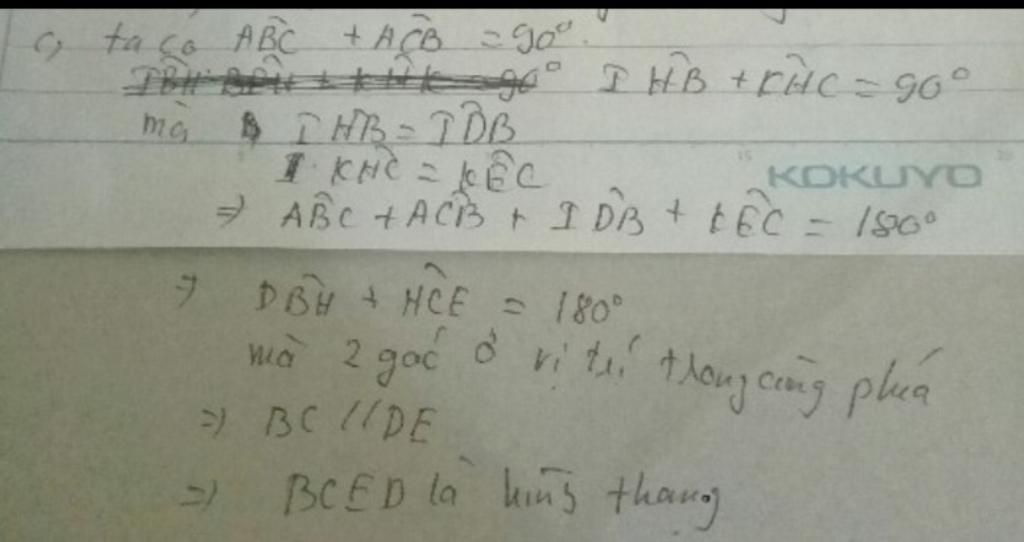 c, ta có ABC + ACB = 90°.
IHB + KHC = 90°
mà IHB = IDB
KHC = KEC
KOKUYO
⇒ ABC + ACB + IDB + KEC = 180°
⇒ DBH + HCE = 180°
mà 2 goć ở vị trí trong cùng phiá
⇒ BC // DE
⇒ BCED là hình thang